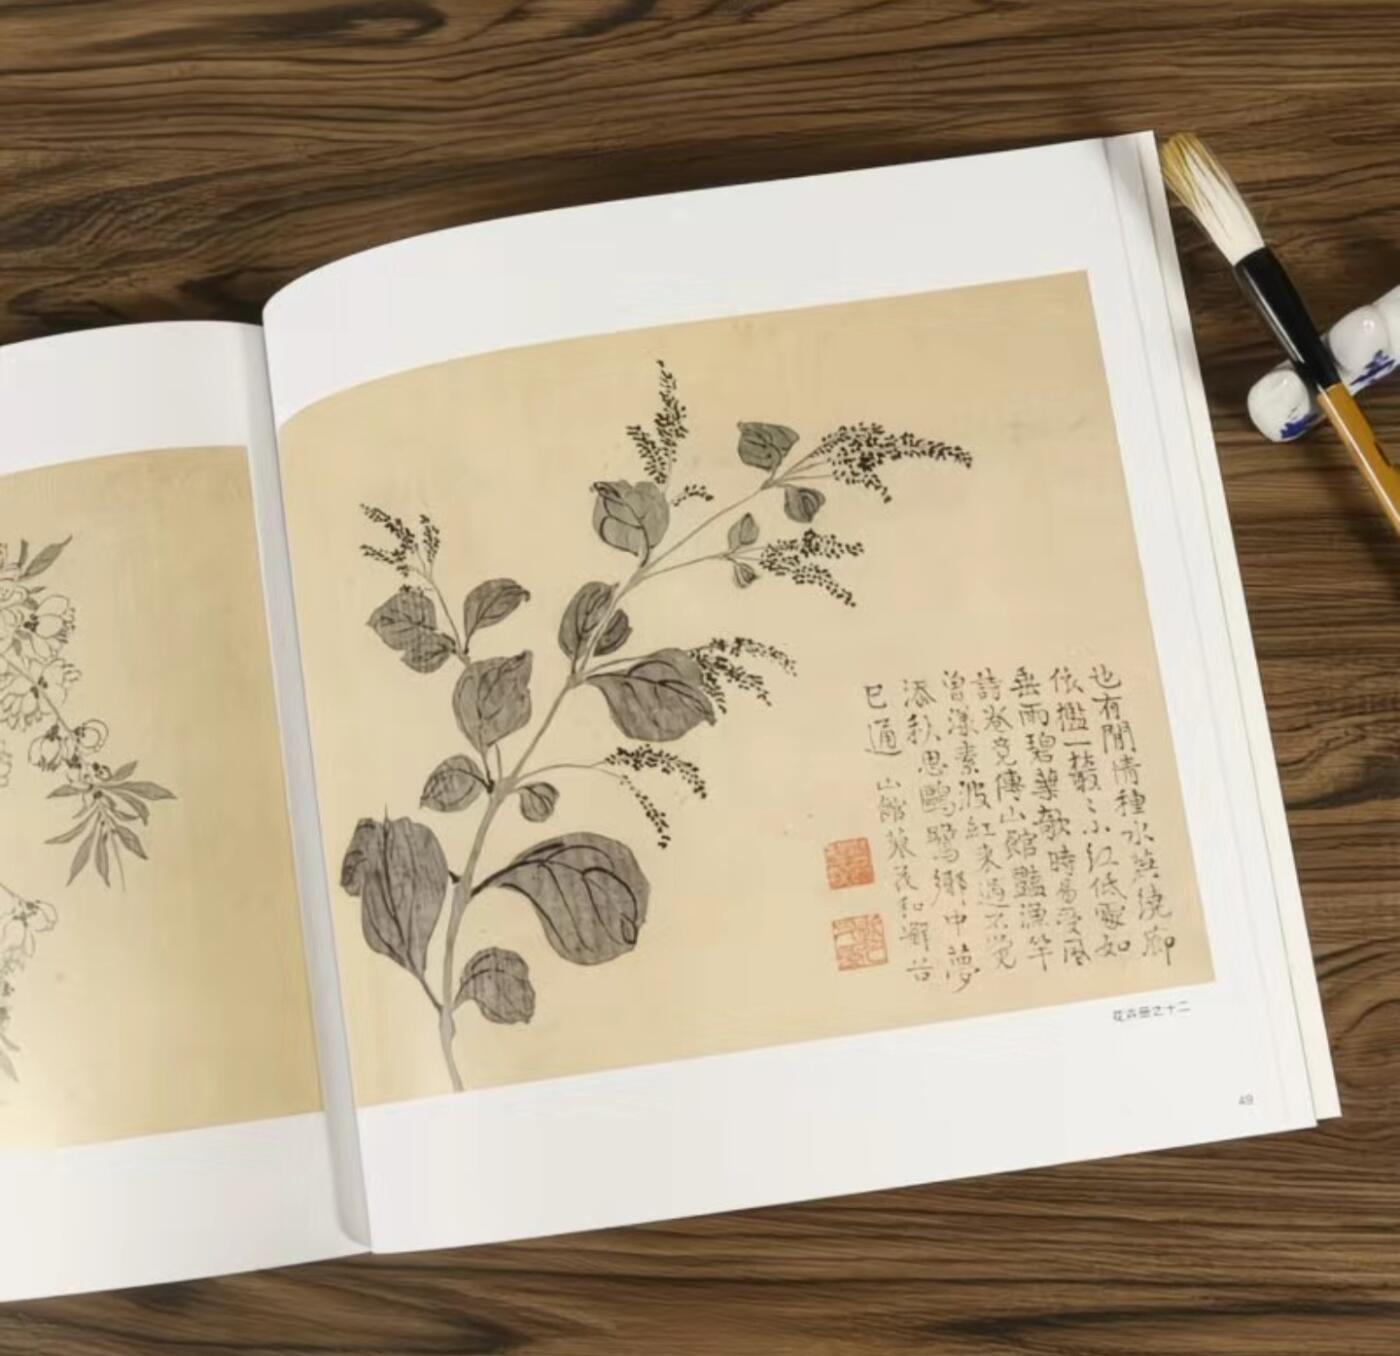 也有閒情種水葓繞廊
依檻一叢〻小紅低處如
垂雨碧葉欹時易受風
詩卷竟傳山館豔漁竿
曾漾素波紅來過不覺
添秋思鷗鷺鄉中夢
已通 山館葓花和
花卉册之十二
49